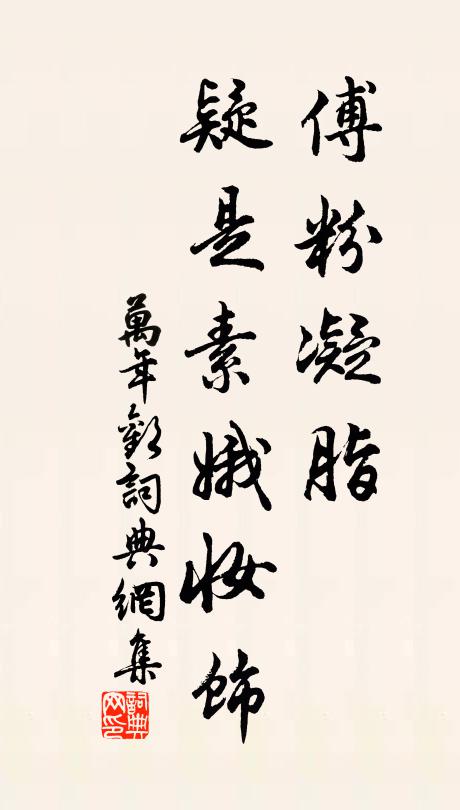 傅粉凝脂
疑是素娥妆饰
萬年歡詞典網集
詞典
网印